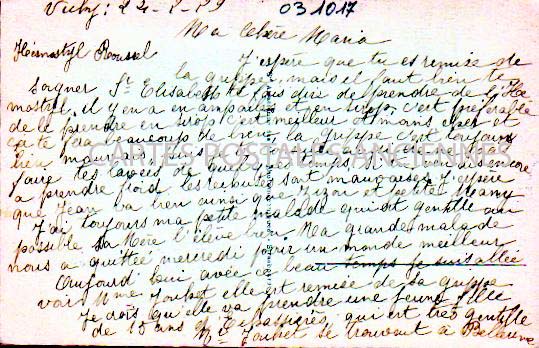 Vichy, 24-2-29
031017
Ma chère Maria
Hémostyl Roussel
J'espère que tu es remise de
la grippe, mais il faut bien te
soigner St Elisabeth te fais dire de prendre de l'Hé
mostyl, il y en a en ampoules et en sirop, c'est préférable
de le prendre en sirop c'est meilleur et moins cher et
ça te fera beaucoup de bien, la grippe c'est toujours
bien mauvais
faire les encore
à prendre froid les rechutes sont mauvaises. J'espère
que Jean va bien ainsi que et petite Many
J'ai toujours ma petite malade qui est gentille au
possible sa Mère l'élève bien. Ma grande malade
nous a quittée mercredi pour un monde meilleur
Aujourd'hui avec ce beau temps je suis allée
voir Mme Joubet elle est remise de sa grippe
Je crois qu'elle va prendre une jeune fille
de 15 ans qui est très gentille
Mr Joubet se trouvait à Bellerive
CARTES POSTALES ANCIENNES